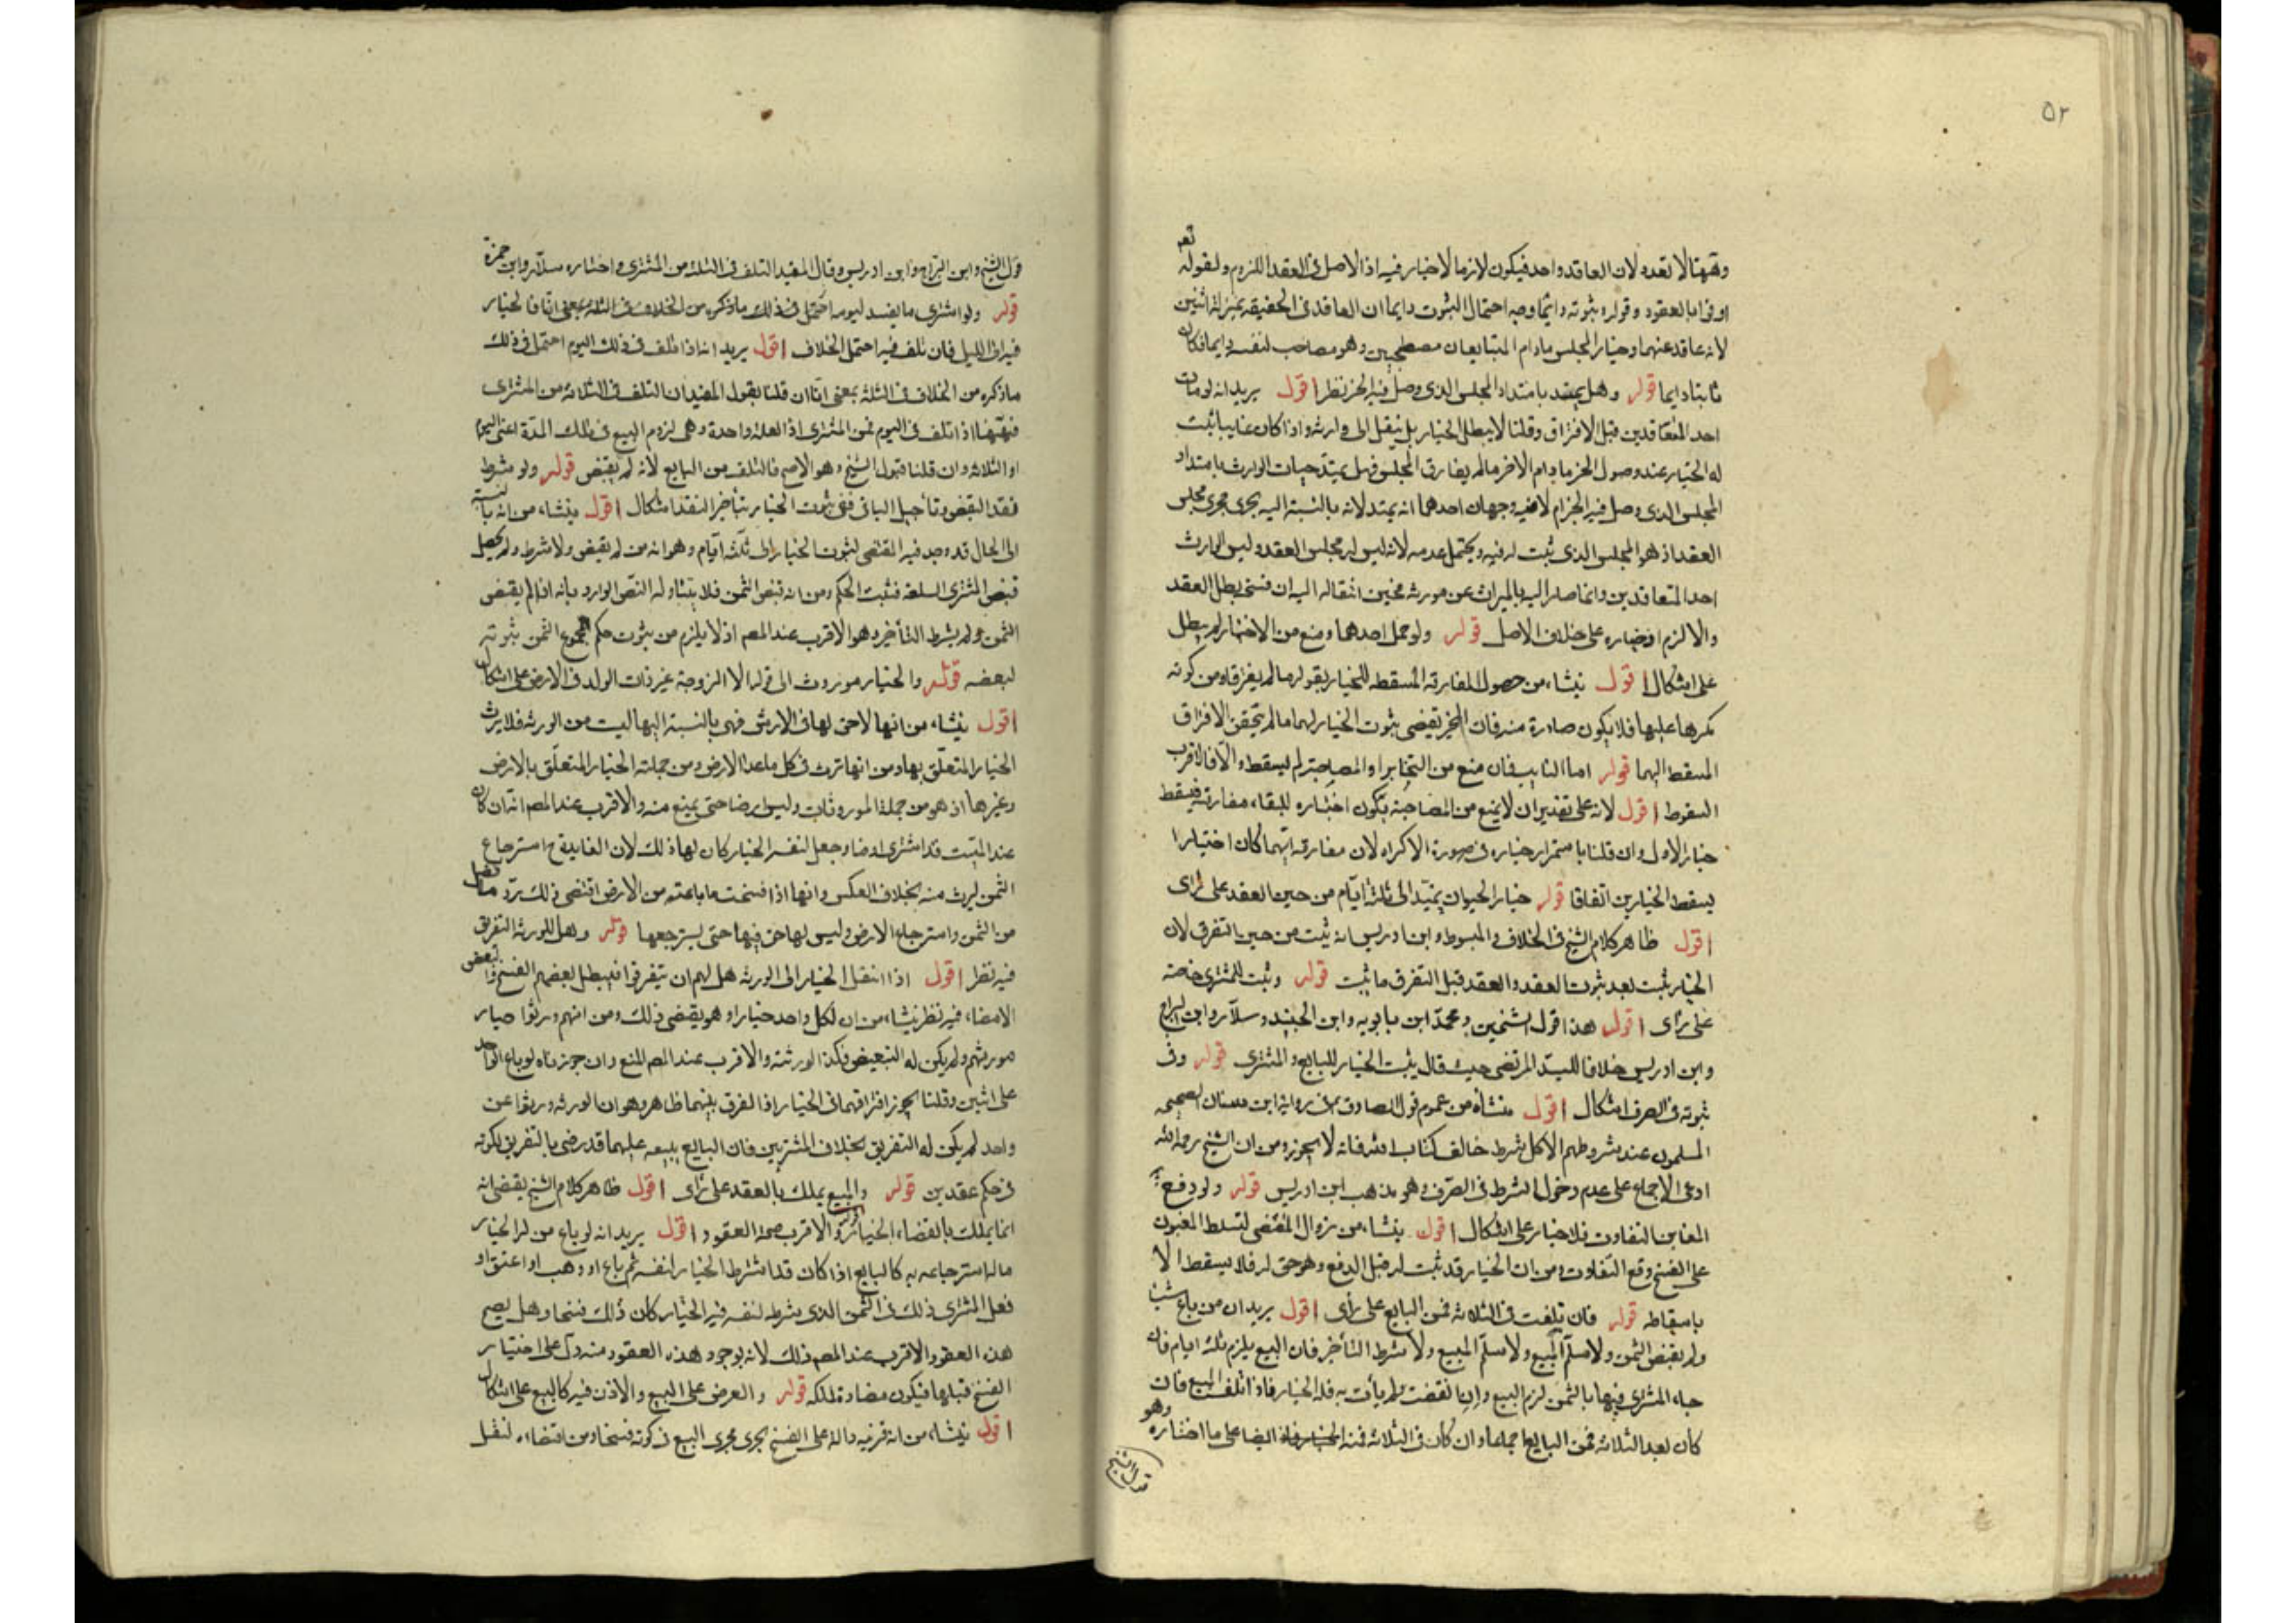 ٥٢
وههنا لا تعدد لان العاقد واحد فيكون لازما لا خيار فيه اذ الاصل في العقد اللزوم ولقوله تعه
اوفوا بالعقود وقوله بثبوته دايما وجه احتمال الثبوت دايما ان العاقد في الحقيقة بمنزلة اثنين
لانه عاقد عنهما وخيار المجلس ما دام المتبايعان مصطحبين وهو مصاحب لنفسه دايما فكان
ثابتا دايما قوله وهل يمتد بامتداد المجلس الذي وصل فيه الخبر نظر اقول يريد انه لو مات
احد المتعاقدين قبل الافتراق وقلنا لا يبطل الخيار بل ينتقل الى وارثه واذا كان غايبا يثبت
له الخيار عند وصول الخبر ما دام الاخر ما لم يفارق المجلس فهل يمتد حيات الوارث بامتداد
المجلس الذي وصل فيه الخبر ام لا فيه وجهان احدهما انه يمتد لانه بالنسبة اليه يجري مجرى مجلس
العقد اذ هو المجلس الذي ثبت له فيه ويحتمل عدمه لانه ليس له مجلس العقد وليس الوارث
احد المتعاقدين وانما صار اليه بالميراث عن مورثه فحين انتقاله اليه ان فسخ بطل العقد
والا لزم اذ خياره على خلاف الاصل قوله ولو حمل احدهما ومنع من الاختيار لم يبطل
على اشكال اقول ينشاء من حصول المفارقة المسقطة للخيار بقوله ما لم يفترقا ومن كونه
مكرها عليها فلا يكون صادرة منه فان الخبر يقتضي ثبوت الخيار لهما ما لم يتحقق الافتراق
المسقط اليهما قوله اما الثابت فان منع من التخاير او المصاحبة لم يسقط والا فالاقرب
السقوط اقول لانه على تقدير ان لا يمنع من المصاحبة يكون اختياره للبقاء مفارقة فيسقط
خيار الاول وان قلنا باستمرار خياره في صورة الاكراه لان مفارقة ايهما كان اختيارا
يسقط الخيارين اتفاقا قوله خيار الحيوان يمتد الى ثلثة ايام من حين العقد على راى
اقول ظاهر كلام الشيخ في الخلاف والمبسوط وابن ادريس انه يثبت من حين التفرق لان
الخيار يثبت بعد ثبوت العقد والعقد قبل التفرق ما يثبت قوله ويثبت للمشتري خاصة
على راى اقول هذا قول الشيخين ومحمد ابن بابويه وابن الجنيد وسلار وابن البراج
وابن ادريس خلافا للسيد المرتضى حيث قال يثبت الخيار للبايع والمشتري قوله وفي
ثبوته في الصرف اشكال اقول منشاه من عموم قول الصادق في رواية ابن سنان الصحيحه
المسلمون عند شروطهم الا كل شرط خالف كتاب الله فانه لا يجوز ومن ان الشيخ رحمه الله
ادعى الاجماع على عدم دخول الشرط في الصرف وهو مذهب ابن ادريس قوله ولو دفع
الغابن التفاوت فلا خيار على اشكال اقول ينشاء من زوال المقتضي لتسلط المغبون
على الفسخ وقع التفاوت ومن ان الخيار قد ثبت له قبل الدفع وهو حق له فلا يسقط الا
باسقاطه قوله فان تلفت في الثلاثة فمن البايع على رأى اقول يريد ان من باع شيئا
ولم يقبض الثمن ولا سلم المبيع ولا سلم المبيع ولا شرط التأخير فان البيع يلزم ثلثة ايام فان
جاء المشتري فيها بالثمن لزم البيع وان انقضت ولم يأت به فله الخيار فاذا تلف المبيع فان
كان بعد الثلاثة فمن البايع اجماعا وان كان في الثلاثة فمنه ايضا على ما اختاره وهو
قول الشيخ
قول الشيخ وابن البراج وابن ادريس وقال المفيد التلف في الثلثة من المشتري واختاره سلار وابن حمزة
قوله ولو اشترى ما يفسد ليومه احتمل في ذلك ما ذكره من الخلاف في الثلثة بمعنى انا فالخيار
فيه الى الليل فان تلف فيه احتمل الخلاف اقول يريد انه اذا تلف في ذلك اليوم احتمل في ذلك
ما ذكره من الخلاف في الثلثة بمعنى انا ان قلنا بقول المفيد ان التلف في الثلاثة من المشتري
فههنا اذا تلف في اليوم فمن المشتري اذ العلة واحدة وهي لزوم البيع في تلك المدة اعني اليوم
او الثلاثة وان قلنا بقول الشيخ وهو الاصح فالتلف من البايع لانه لم يقبض قوله ولو شرط
نقد البعض وتأجيل الباقي ففي ثبوت الخيار بتأخير النقد اشكال اقول ينشاء من انه بالنسبة
الى الحال قد وجد فيه المقتضي لثبوت الخيار الى ثلثة ايام وهو انه من لم يقبض ولا شرط ولم يحصل
قبض المشتري السلعة فثبت الحكم ومن انه قبض الثمن فلا يتناوله النص الوارد بانه اذا لم يقبض
الثمن ولم يشرط التأخير وهو الاقرب عند المصه اذ لا يلزم من ثبوت حكم لمجموع الثمن ثبوته
لبعضه قوله والخيار موروث الى قوله الا الزوجة غير ذات الولد في الارض على اشكال
اقول ينشاء من انها لا حق لها في الارض فهي بالنسبة اليها ليست من الورثة فلا يرث
الخيار المتعلق بها ومن انها ترث في كل ما عدا الارض ومن جملته الخيار المتعلق بالارض
وغيرها اذ هو من جملة الموروثات وليس ارضا حتى يمنع منه والاقرب عند المصه انه ان كان
عند الميت قد اشترى ارضا وجعل لنفسه الخيار كان لها ذلك لان الفايدة ح استرجاع
الثمن ليرث منه بخلاف العكس وانها اذا فسخت ما باعته من الارض اقتضى ذلك رد ما
من الثمن واسترجاع الارض وليس لها حق فيها حتى يسترجعها قوله وهل للورثة التفريق
فيه نظر اقول اذا انتقل الخيار الى الورثة هل لهم ان يتفرقوا فيبطل بعضهم الفسخ وا لبعض
الامضاء فيه نظر ينشاء من ان لكل واحد خيارا وهو يقتضي ذلك ومن انهم ورثوا خيار
مورثهم ولم يكن له التبعيض فكذا لورثته والاقرب عند المصه المنع وان جوزناه لو باع الواحد
على اثنين وقلنا يجوز افتراقهما في الخيار اذ الفرق بينهما ظاهر وهو ان الورثة ورثوا عن
واحد لم يكن له التفريق بخلاف المشتريين فان البايع ببيعه عليهما قد رضي بالتفريق لكونه
في حكم عقدين قوله والمبيع يملك بالعقد على رأى اقول ظاهر كلام الشيخ يقتضي انه
انما يملك بالقضاء الخيار قوله والاقرب صحة العقود اقول يريد انه لو باع من له الخيار
ما له استرجاعه به كالبايع اذا كان قد اشترط الخيار لنفسه ثم باع او وهب او اعتق او
فعل المشتري ذلك في الثمن الذي يشرط لنفسه فيه الخيار كان ذلك فسخا وهل يصح
هذه العقود الاقرب عند المصه ذلك لانه بوجود هذه العقود منه دل على اختيار
الفسخ قبلها فيكون مصادفة لملكه قوله والعرض على البيع والاذن فيه كالبيع على اشكال
اقول ينشاء من انه قرينة دالة على الفسخ يجري مجرى البيع في كونه فسخا ومن اقتضاء لنقل